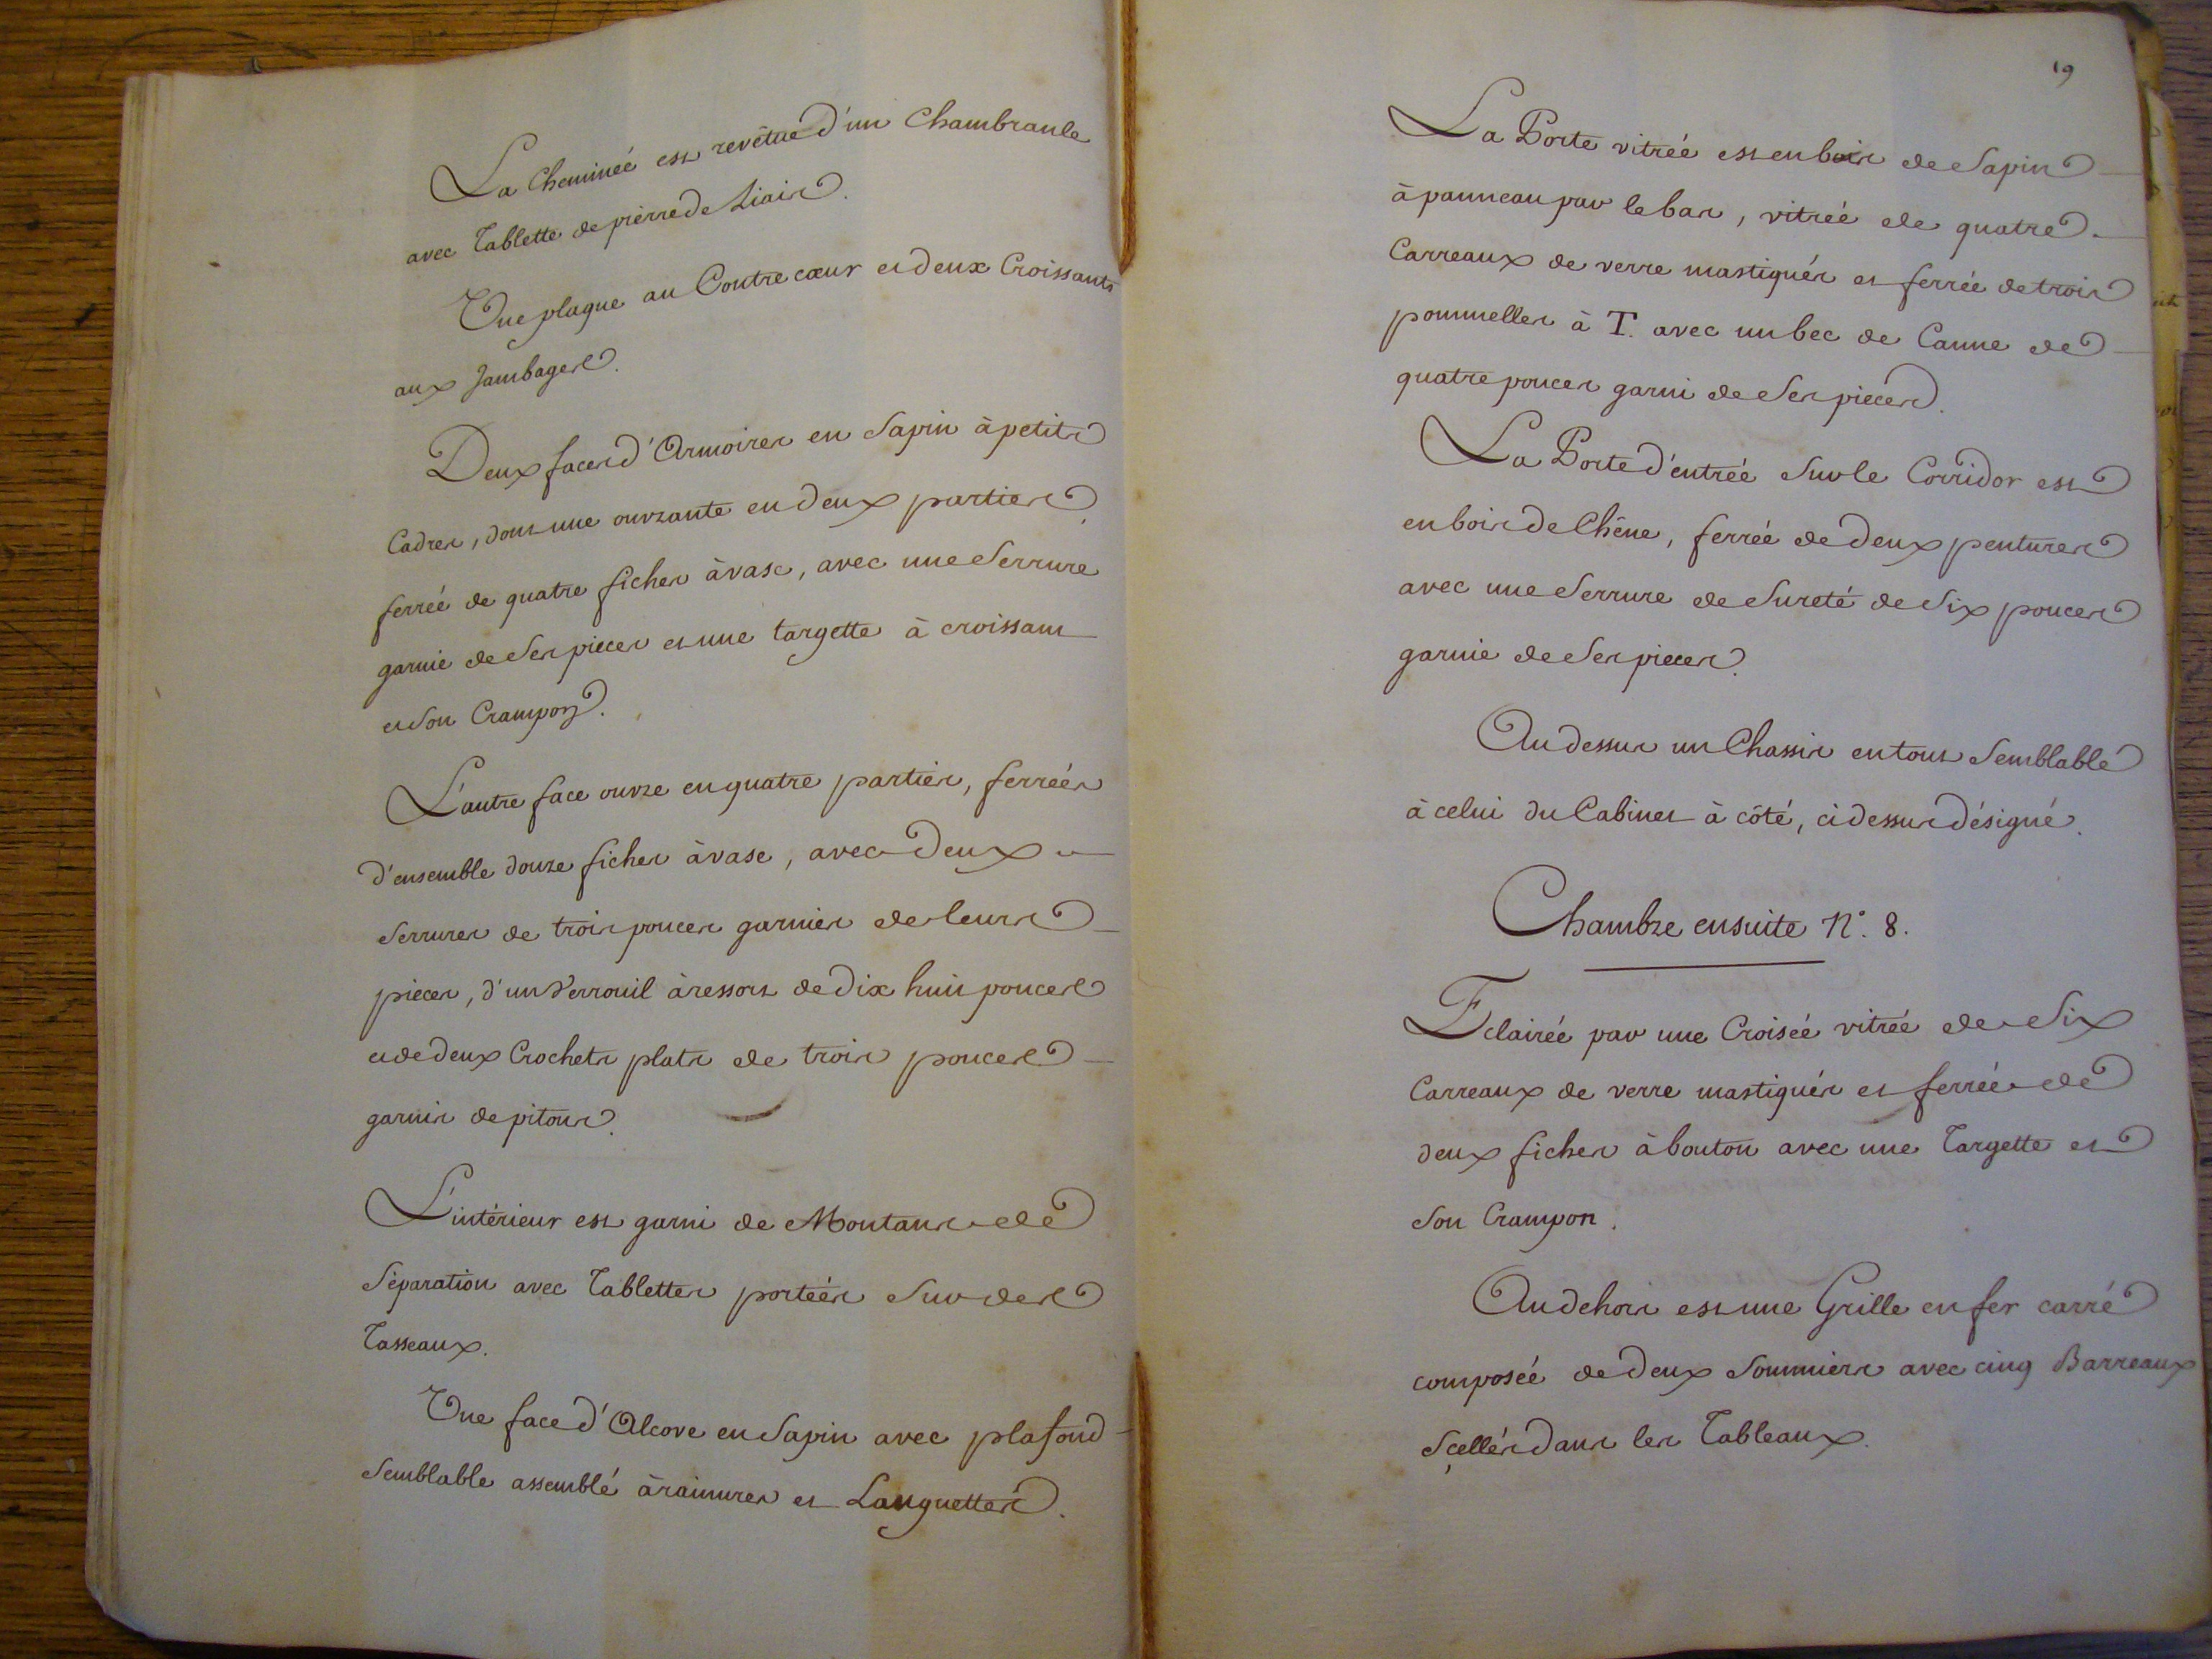 La Cheminée est revêtue d'un Chambranle
avec Tablette de pierre de Liais.
Une plaque au Contre cœur et deux Croissants
aux Jambages.
Deux faces d'Armoires en Sapin à petits
Cadres, dont une ouvrante en deux parties,
ferrée de quatre fiches à vase, avec une Serrure
garnie de Ses pieces et une targette à croissant
et Son Crampon.
L'autre face ouvre en quatre parties, ferrées
d'ensemble douze fiches à vase, avec deux
Serrures de trois pouces garnies de leurs
pieces, d'un Verrouil à ressort de dix huit pouces
et de deux Crochets plats de trois pouces
garnis de pitons.
L'intérieur est garni de Montans de
Séparation avec Tablettes portées Sur des
Tasseaux.
Une face d'Alcove en Sapin avec plafond
Semblable assemblé à rainures et Languettes.
19
La Porte vitrée est en bois de Sapin
à panneau par le bas, vitrée de quatre
Carreaux de verre mastiqués et ferrée de trois
pommelles à T. avec un bec de Canne de
quatre pouces garni de Ses pieces.
La Porte d'entrée Sur le Corridor est
en bois de Chêne, ferrée de deux pentures
avec une Serrure de Sureté de Six pouces
garnie de Ses pieces.
Au dessus un Chassis en tout Semblable
à celui du Cabinet à côté, ci dessus désigné.
Chambre ensuite N°. 8.
Eclairée par une Croisée vitrée de Six
Carreaux de verre mastiqués et ferrée de
deux fiches à bouton avec une Targette et
Son Crampon.
Au dehors est une Grille en fer carré
composée de deux Sommiers avec cinq Barreaux
Scellés dans les Tableaux.